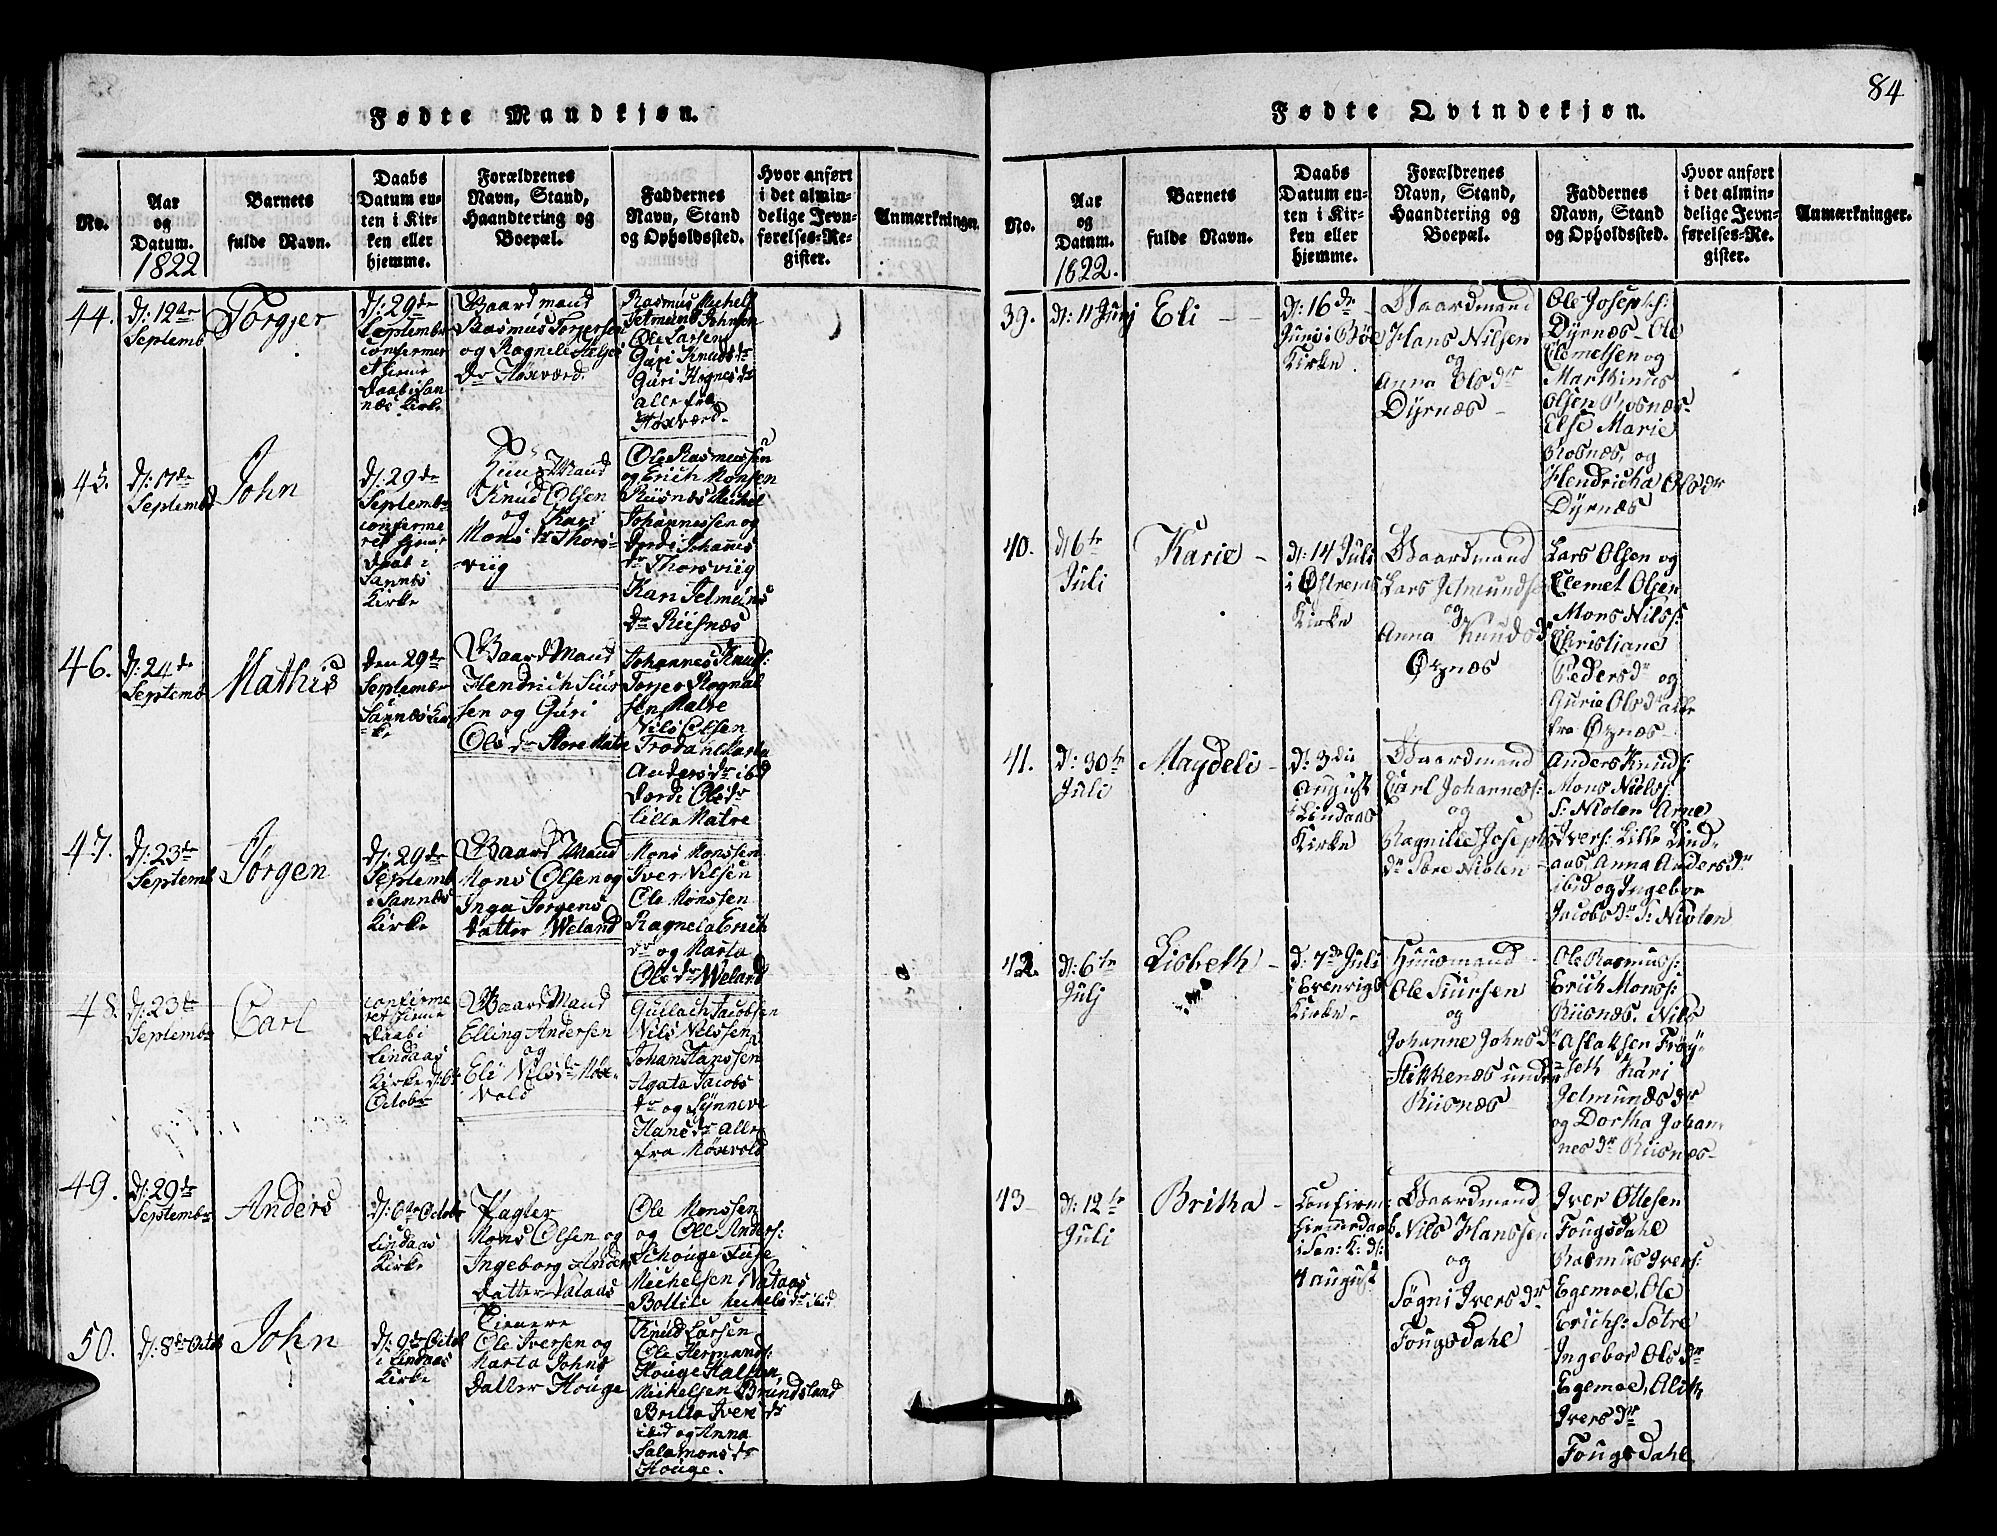 84
Fødte Mandkjøn.
No.
Aar
og
Datum.
1822
Barnets
fulde Navn.
Daabs
Datum en-
ten i Kir-
ken eller
hjemme.
Forældrenes
Navn, Stand,
Haandtering og
Boepæl.
Faddernes
Navn, Stand
og Opholdssted.
Hvor anført
i det almin-
delige Jevn-
førelses-Re-
gister.
Anmærkninger.
44.
d: 12te
Septemb
Torgjer
d: 29de
Septembr
confermer
et hieme
Daab i San
næs Kirke
Gaardmand
Rasmus Torjersen
og Ragnele Heljes
Dr Høxværd.
Rasmus Michels
Jetmund Johnsen
Ole Larsen
Guri Knudsdr
Guri Hognesdr
alle fra
Høxværd
45.
d: 17de
Septemb
John
d: 29de
Septembr
conferme
ret hjem
Daab i
Sannes
Kirke
Huus Mand
Knud Olsen
og Kari
Monsdr Thors-
viig
Ole Rasmussen
og Erich Monsen
Riisnæs Michel
Johannessen og
Dorde Johannes
dr Thorsviig
Kari Jetmuns
Dr Riisnæs
46.
d: 24de
Septemb
Mathis
Den 29de
Septembr
i
Sannes Kir-
ke
Gaard Mand
Hendrich Siur
sen og Guri
Olsdr Store Matre
Johannes Knuds:
Torjer Rognal
sen Matre
Nils Olsen
Trodahl Marta
Andersdr ibd
Dordi Olsdr
Lille Matre
47.
d: 23de
Septemb
Jørgen
d: 29de
Septemb
i Sannæs
Kirke
Gaard Mand
Mons Olsen og
Inga Jørgens
Datter Weland
Mons Monssen
Iver Nilsen
Ole Monssen
Ragnela Erich
dr og Marta
Olsdr Weland
48.
d: 23de
Septembr
Carl
confirme
ret hieme
Daab i
Lindaas
Kirke d: 6te
Octobr
Gaard Mand
Elling Andersen
og
Eli Nilsdr Møx-
vold
Guulach Jacobsen
Nils Nilssen
Johan Hanssen
Agata Jacobs
dr og Synneve
Hansdr alle
fra Møxvold
49.
d: 29de
Septembr
Anders
d: 6te Octobr
Lindaas
Kirke
Pagter
Mons Olsen og
Ingeborg Anders
Datter Nataas
Ole Monssen
og Ole Anders:
Schouge
Michelsen Nataas
Bollite Michelsdr ibid
50.
d: 8de Octob
John
d: 9de Octob
i Lindaas
Kirke
Tienere
Ole Iversen og
Marta Johns
Datter Houge
Knud Larsen
Ole Hermands:
Houge
Michelsen Brundsland
Britta Ivers dr
ibid og Anna
Salamonsdr
Houge.
Fødte Qvindekjøn.
No.
Aar
og
Datum.
1822.
Barnets
fulde Navn.
Daabs
Datum en-
ten i Kir-
ken eller
hjemme.
Forældrenes
Navn, Stand,
Haandtering og
Boepæl.
Faddernes
Navn, Stand
og Opholdssted.
Hvor anført
i det almin-
delige Jevn-
førelses-Re-
gister.
Anmærkninger.
39.
d: 11 Junj
Eli -
d: 16de
Juni i Bøe
Kirke
Gaardmand
Hans Nilsen
og
Anna Olsdr
Dyrnæs -
Ole Josephs:
Dyrnæs - Ole
Clemetsen og
Marthinus
Olsen Rosnæs
Else Marie
Rosnæs, og
Hendricha Olsdr
Dyrnæs
40.
d 6te
Juli
Karie -
d: 14 Juli
i Østrem
Kirke
Gaardmand
Lars Jetmunds:
og
Anna Knudsdr
Øxnæs
Lars Olsen og
Clemet Olsen
Mons Nilss:
Christiane
Pedersdr og
Gurie Olsdr alle
fra Øxnæs -
41.
d: 30te
Juli
Magdeli -
d: 3die
August
i Lindaas
Kirke
Gaardmand
Carl Johannes:
og
Ragnilde Josephs
dr Søre Nioten
Anders Knuds:
Mons Niels:
S: Nioten Arne
Ivers: Lille Lind-
aas Anna Andersdr
ibid og Ingebor
Jacobsdr S: Nioten
42.
d: 6te
Julj
Lisbeth -
d: 7de Juli
i Evenvigs
Kirke -
Huusmand
Ole Siursen
og
Johanne Johnsdr
Stikkenæs under
Riisnæs
Ole Rasmus:
Erich Mons:
Riisnæs. Nils
Aslaksen Frøy-
seth Kari
Jetmundsdr
og Dortha Johan
nesdr Riisnæs -
43
d: 12te
Juli
Britha -
Confirm:
hiemedaab
i San: K: d:
4 august
Gaardmand
Nils Hanssen
og
Søgni Iversdr
Fougsdahl
Iver Ollesen
Fougsdahl
Rasmus Ivers:
Egemoe, Ole
Erichs: Sætre
Ingebor Olsdr
Egemoe, Alith
Iversdr
Fougsdahl